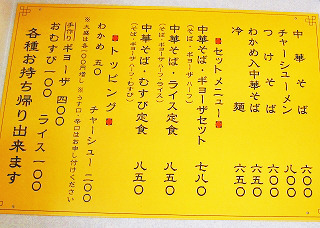 中華そば 六〇〇
チャーシューメン 八〇〇
つけそば 六〇〇
わかめ入中華そば 六五〇
冷麺 六五〇
■セットメニュー■
中華そば・ギョーザセット 七八〇
(そば・ギョーザハーフ)
中華そば・ライス定食 八五〇
(そば・ギョーザハーフ・ライス)
中華そば・むすび定食 八五〇
(そば・ギョーザハーフ・むすび)
■トッピング■
わかめ 五〇 チャーシュー 二〇〇
手作り ギョーザ 四〇〇
おむすび 一〇〇 ライス 一〇〇
各種お持ち帰り出来ます